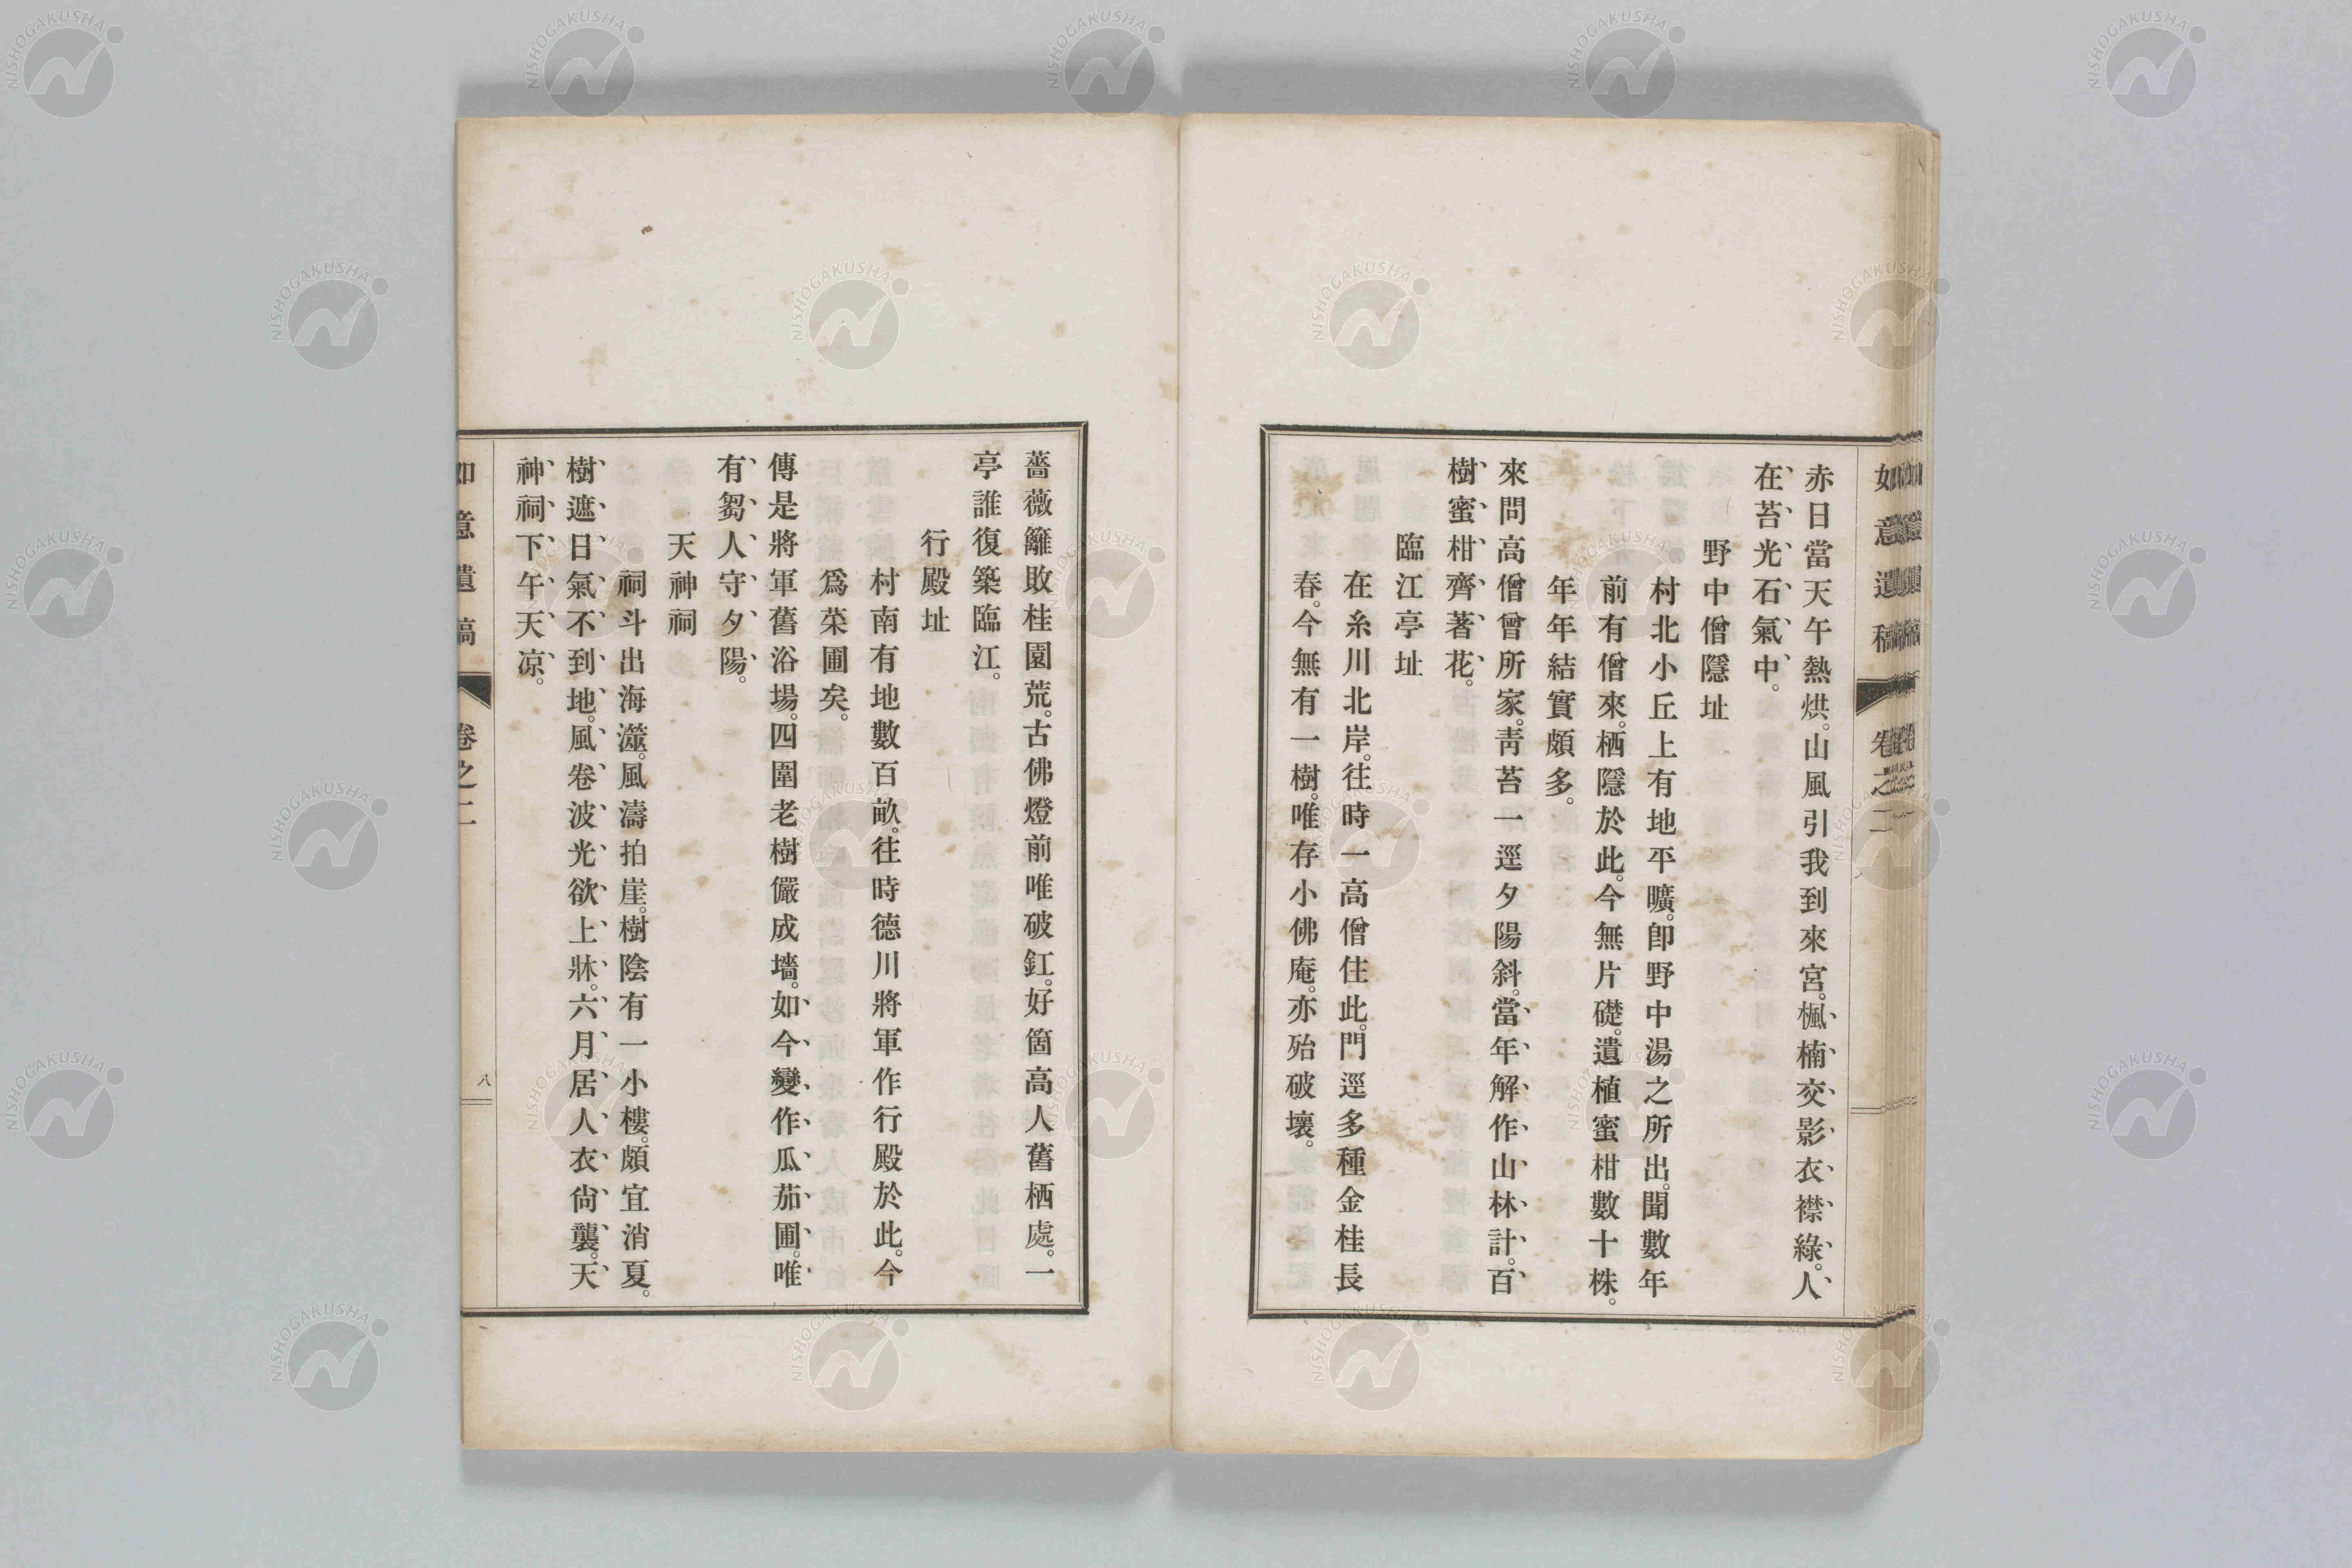 如意遺稿 卷之二
赤日當天午熱烘。山風引我到來宮。楓楠交影衣襟綠。人
在苔光石氣中。
野中僧隱址
村北小丘上有地平曠。卽野中湯之所出。聞數年
前有僧來。栖隱於此。今無片礎。遺植蜜柑數十株。
年年結實頗多。
來問高僧曾所家。靑苔一逕夕陽斜。當年解作山林計。百
樹蜜柑齊著花。
臨江亭址
在糸川北岸。往時一高僧住此。門逕多種金桂長
春。今無有一樹。唯存小佛庵。亦殆破壞。
薔薇籬敗桂園荒。古佛燈前唯破釭。好箇高人舊栖處。一
亭誰復築臨江。
行殿址
村南有地數百畝。往時德川將軍作行殿於此。今
爲菜圃矣。
傳是將軍舊浴場。四圍老樹儼成墻。如今變作瓜茄圃。唯
有芻人守夕陽。
天神祠
祠斗出海澨。風濤拍崖。樹陰有一小樓。頗宜消夏。
樹遮日氣不到地。風卷波光欲上牀。六月居人衣尙襲。天
神祠下午天凉。
如意遺稿 卷之二 八
NISHOGAKUSHA